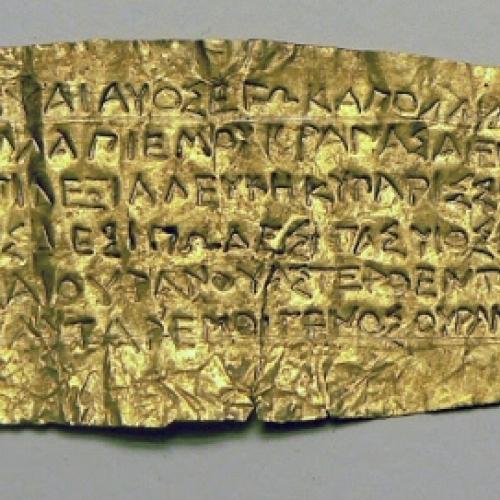 ΑΙΑΥΟΣΕΓΩΚΑΠΟΛΛ
ΛΛΑΠΙΕΜΟΥΚΡΑΝΑΣΑΙ
ΠΙΔΕΞΙΑΛΕΥΚΗΚΥΠΑΡΙΣΣ
ΣΔΕΣΙΠΩΔΕΣΙΓΑΣΥΙΟΣ
ΑΙΟΥΡΑΝΟΥΑΣΤΕΡΟΕΝΤ
ΑΥΤΑΡΕΜΟΙΓΕΝΟΣΟΥΡΑΝ